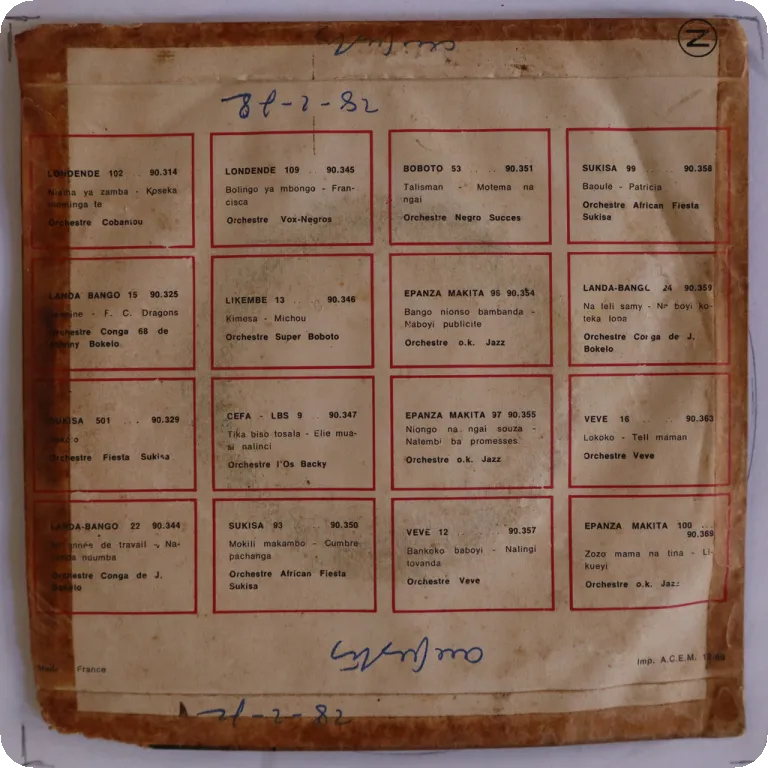 N
LONDENDE 102 .. 90.314
ya zamba - Koseka
te
Orchestre Cobantou
LONDENDE 109 .. 90.345
Bolingo ya mbongo - Fran-
cisca
Orchestre Vox-Negros
BOBOTO 53 .... 90.351
Talisman - Motema na
ngai
Orchestre Negro Succes
SUKISA 99 .... 90.358
Baoule - Patricia
Orchestre African Fiesta
Sukisa
LANDA BANGO 15 90.325
- F. C. Dragons
Orchestre Conga 68 de
Johnny Bokelo
LIKEMBE 13 .... 90.346
Kimesa - Michou
Orchestre Super Boboto
EPANZA MAKITA 96 90.354
Bango nionso bambanda -
Naboyi publicite
Orchestre o.k. Jazz
LANDA-BANGO 24 90.359
Na teli samy - Na boyi ko-
teka lopa
Orchestre Conga de J.
Bokelo
SUKISA 501 ... 90.329
Orchestre Fiesta Sukisa
CEFA - LBS 9 .. 90.347
Tika biso tosala - Elie mua-
si nalinci
Orchestre l'Os Backy
EPANZA MAKITA 97 90.355
Niongo na ngai souza -
Nalembi ba promesses
Orchestre o.k. Jazz
VEVE 16 .... 90.363
Lokoko - Tell maman
Orchestre Veve
LANDA-BANGO 22 90.344
de travail - Na-
noumba
Orchestre Conga de J.
Bokelo
SUKISA 93 .... 90.350
Mokili makambo - Cumbre
pachanga
Orchestre African Fiesta
Sukisa
VEVE 12 .... 90.357
Bankoko baboyi - Nalingi
tovanda
Orchestre Veve
EPANZA MAKITA 100 ...
90.369
Zozo mama na tina - Li-
kueyi
Orchestre o.k. Jazz
Made France
Imp. A.C.E.M.